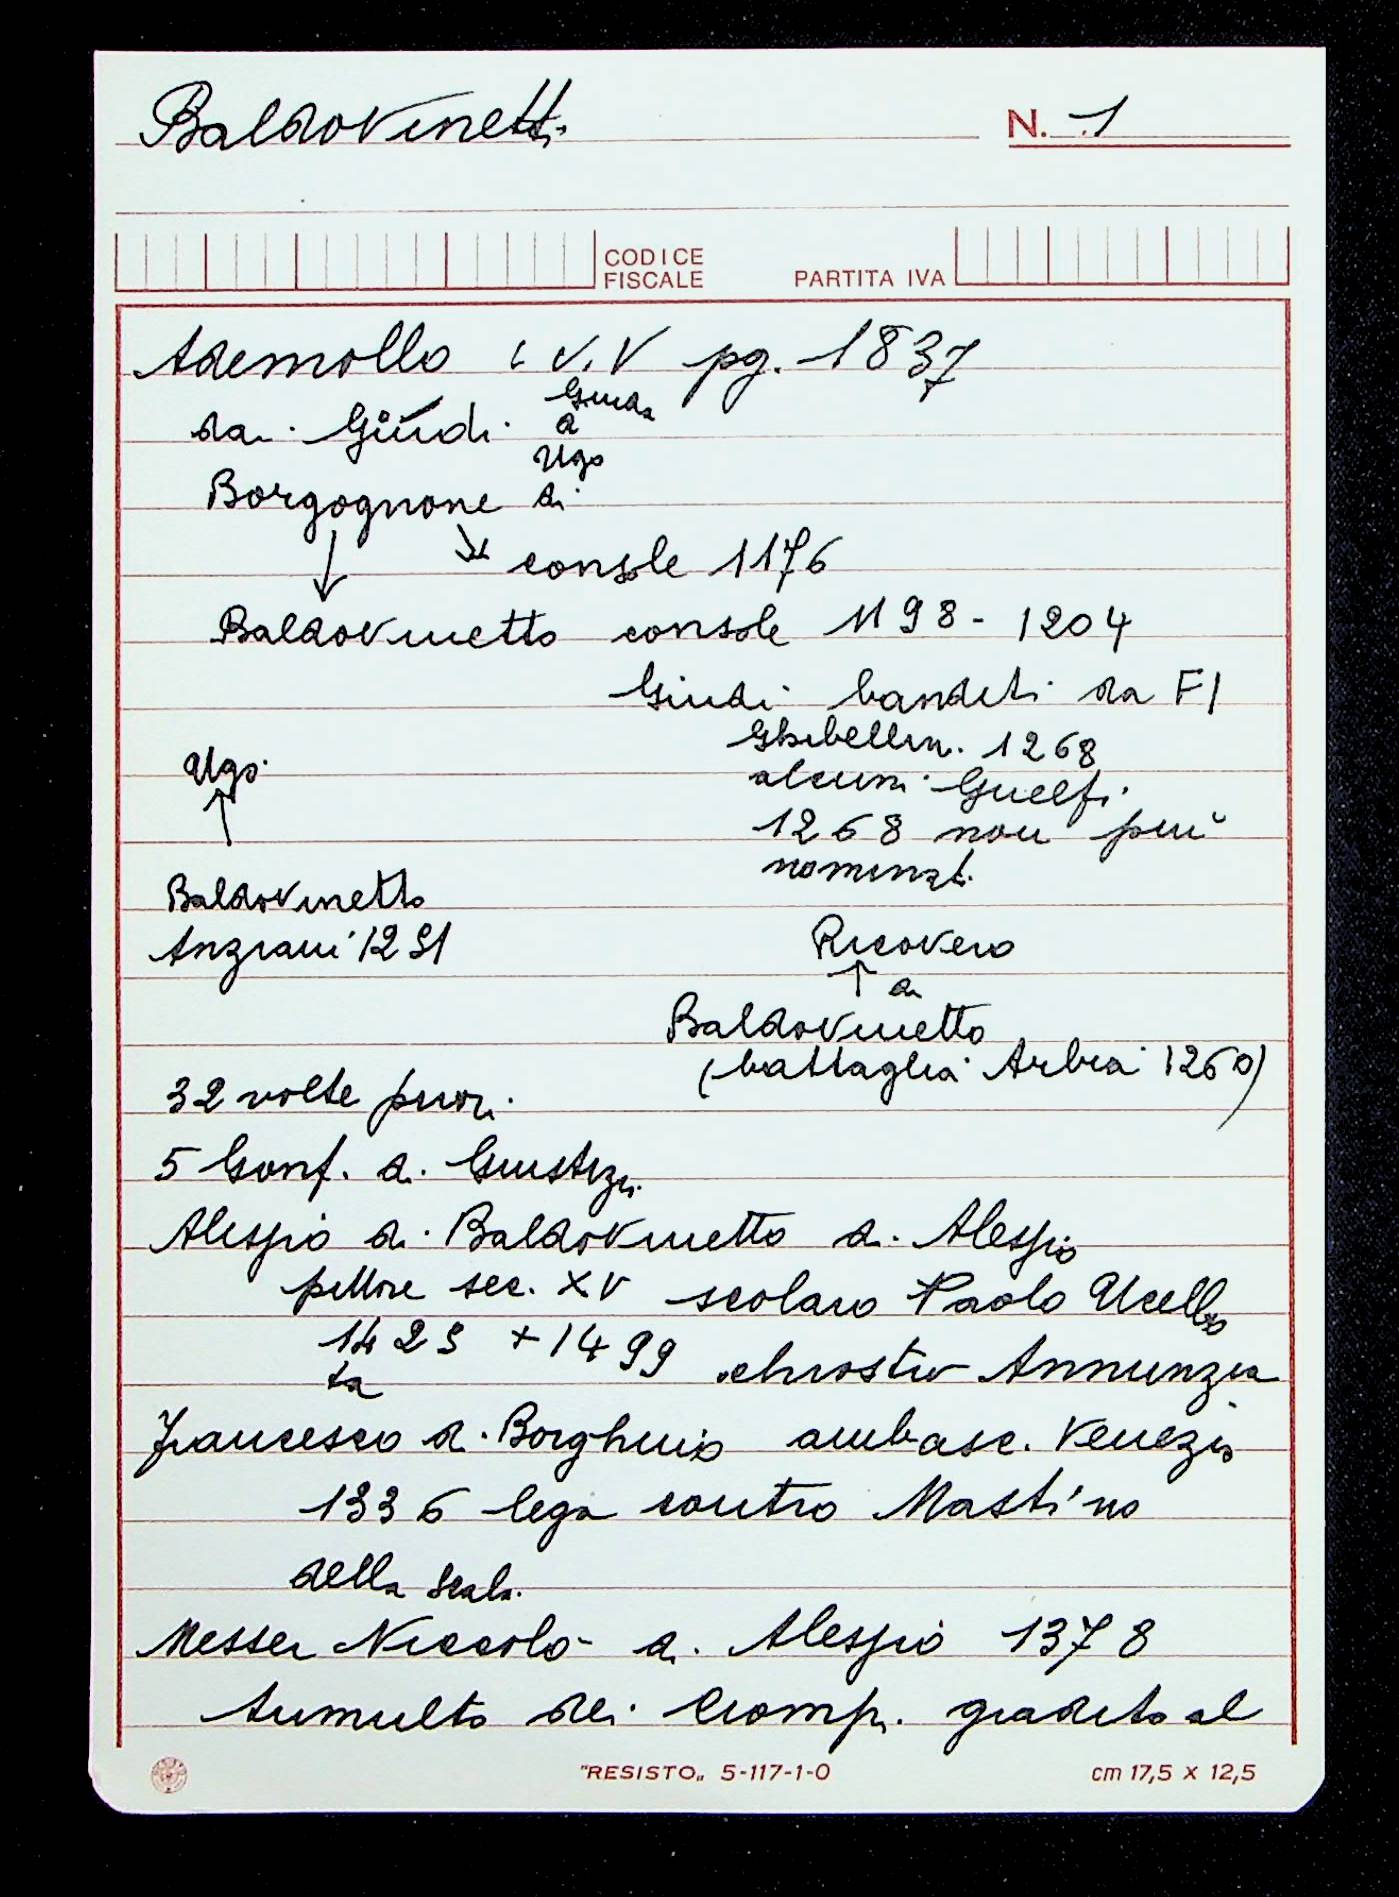 Baldovinetti
N. 1
CODICE
FISCALE
PARTITA IVA
Ademollo V. V pg. 1837
dai Giudi Giuda
di
Ugo
Borgognone di
console 1176
Baldovinetto console 1198 - 1204
Giudi banditi da FI
Ghibellin. 1268
Ugo
alcuni Guelfi
1268 non più
nominati
Baldovinetto
Anziani 1251
Ricovero
di
Baldovinetto
(battaglia Arbia 1260)
32 volte priori
5 Gonf. di Giustizia
Alessio di Baldovinetto di Alessio
pittore sec. XV scolaro Paolo Ucello
1425 + 1499 chiostro Annunzia
ta
Francesco di Borghino ambasc. Venezia
1336 lega contro Mastino
della Scala
Messer Niccolò di Alessio 1378
tumulto dei Ciompi gradito al
"RESISTO„ 5-117-1-0
cm 17,5 x 12,5